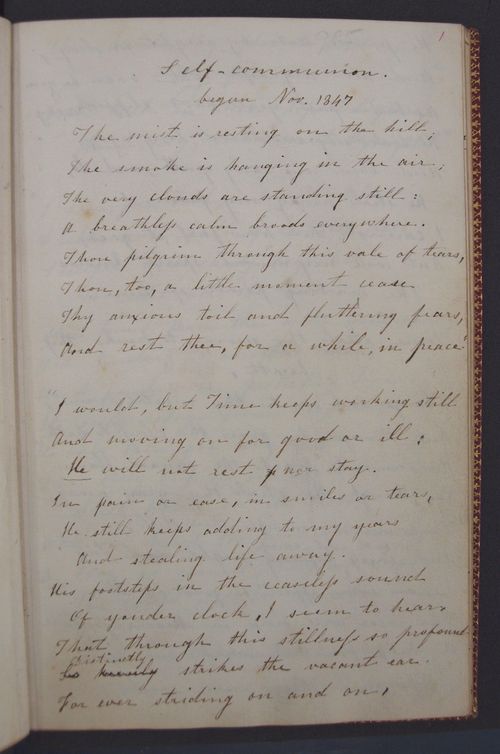 1
Self-communion.
begun Nov. 1847
The mist is resting on the hill;
The smoke is hanging in the air;
The very clouds are standing still:
A breathless calm broods everywhere.
Thou pilgrim through this vale of tears,
Thou, too, a little moment cease
Thy anxious toil and fluttering fears,
And rest thee, for a while, in peace"
"I would, but Time keeps working still
And moving on for good or ill:
He will not rest nor stay.
In pain or ease, in smiles or tears,
He still keeps adding to my years
And stealing life away.
His footsteps in the ceaseless sound
Of yonder clock, I seem to hear,
That through this stillness so profound
Distinctly
So strikes the vacant ear.
For ever striding on and on,